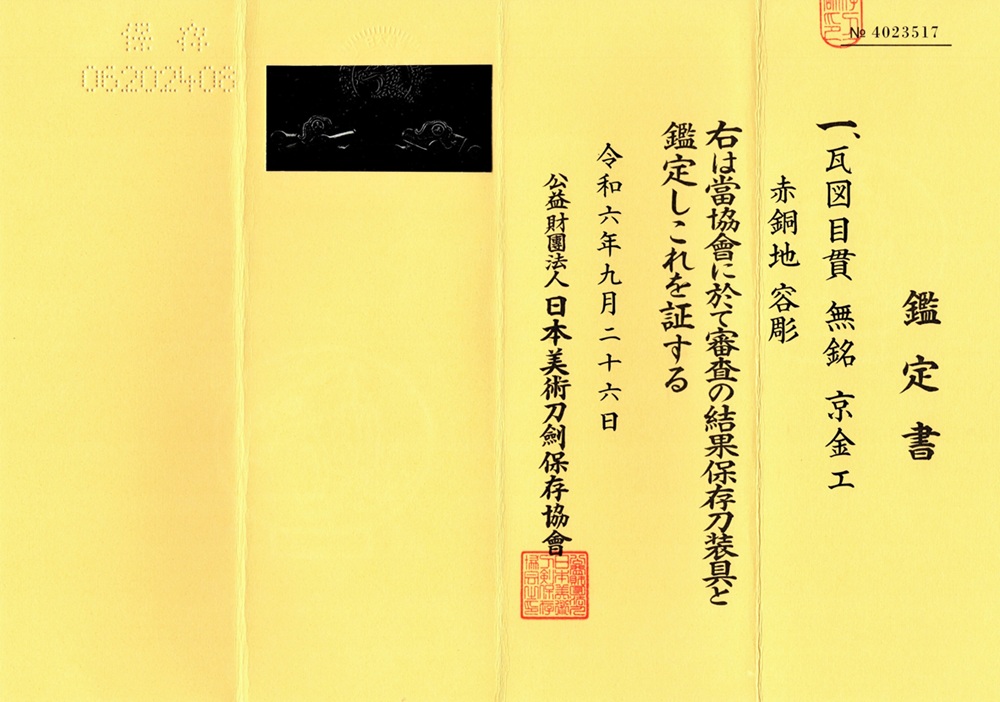 № 4023517
鑑定書
一、瓦図目貫 無銘 京金工
赤銅地 容彫
右は當協會に於て審査の結果保存刀装具と
鑑定しこれを証する
令和六年九月二十六日
公益財團法人 日本美術刀劍保存協會
保存
06202408